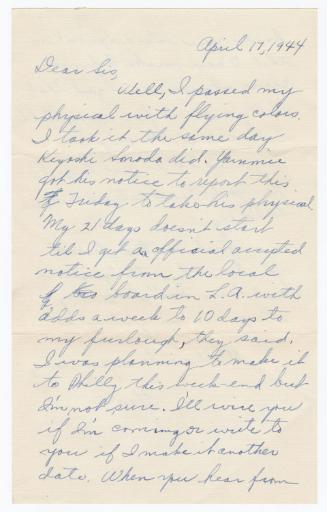 April 17, 1944
Dear Sis,
Well, I passed my
physical with flying colors.
I took it the same day
Kiyoshi Sonoda did. Yammie
got his notice to report this
Friday to take his physical
My 21 days doesn't start
til I get an official accepted
notice from the local
board in L.A. with
adds a week to 10 days to
my furlough, they said.
I was planning to make it
to Philly this week-end but
I'm not sure. I'll wire you
if I'm coming or write to
you if I make it another
date. When you hear from